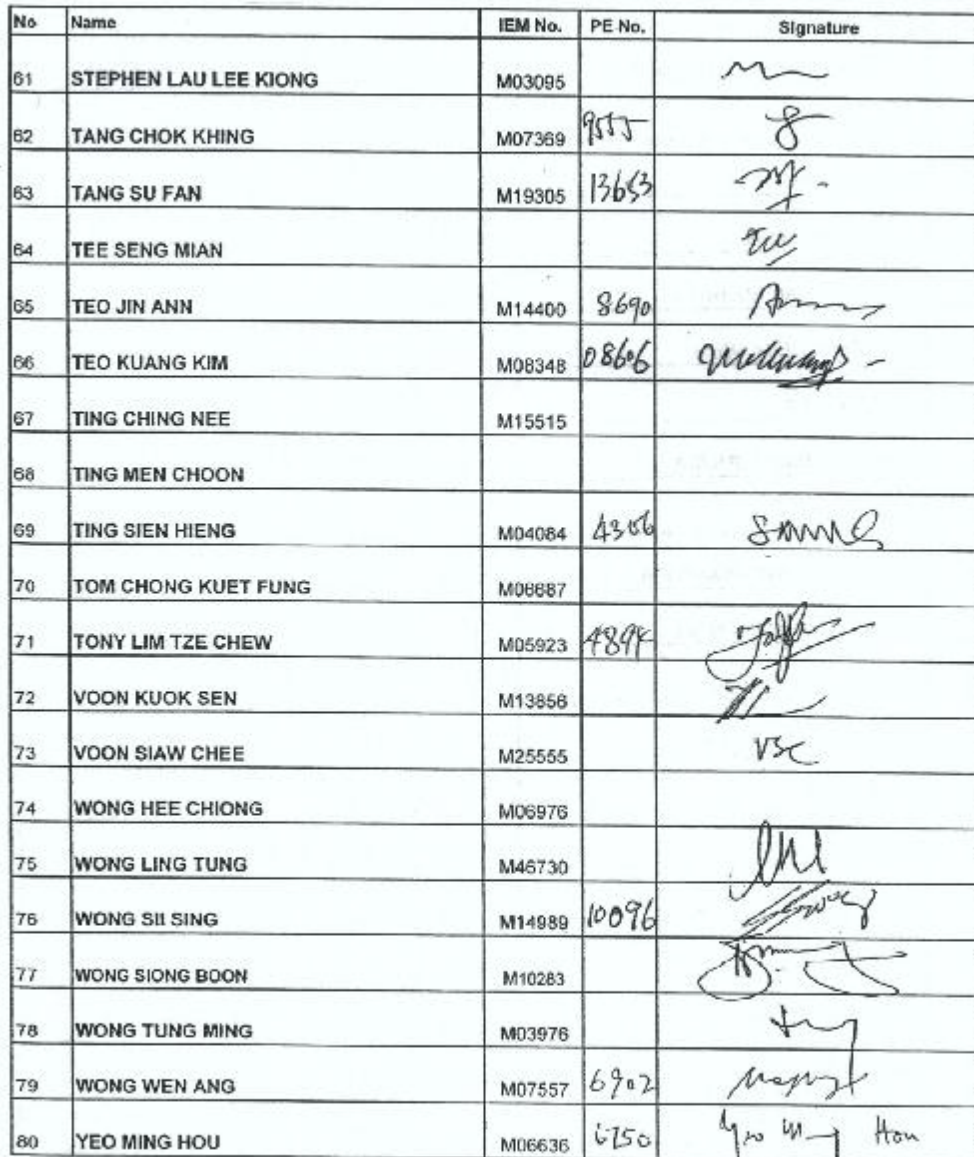 No Name IEM No. PE No. Signature
61 STEPHEN LAU LEE KIONG M03095
62 TANG CHOK KHING M07369 9555
63 TANG SU FAN M19305 13653
64 TEE SENG MIAN
65 TEO JIN ANN M14400 8690
66 TEO KUANG KIM M08348 08606
67 TING CHING NEE M15515
68 TING MEN CHOON
69 TING SIEN HIENG M04084 4306
70 TOM CHONG KUET FUNG M06687
71 TONY LIM TZE CHEW M05923 4894
72 VOON KUOK SEN M13856
73 VOON SIAW CHEE M25555 VSC
74 WONG HEE CHIONG M06976
75 WONG LING TUNG M46730
76 WONG SII SING M14989 10096
77 WONG SIONG BOON M10283
78 WONG TUNG MING M03976
79 WONG WEN ANG M07557 6902
80 YEO MING HOU M06636 6750 Yeo Ming Hou